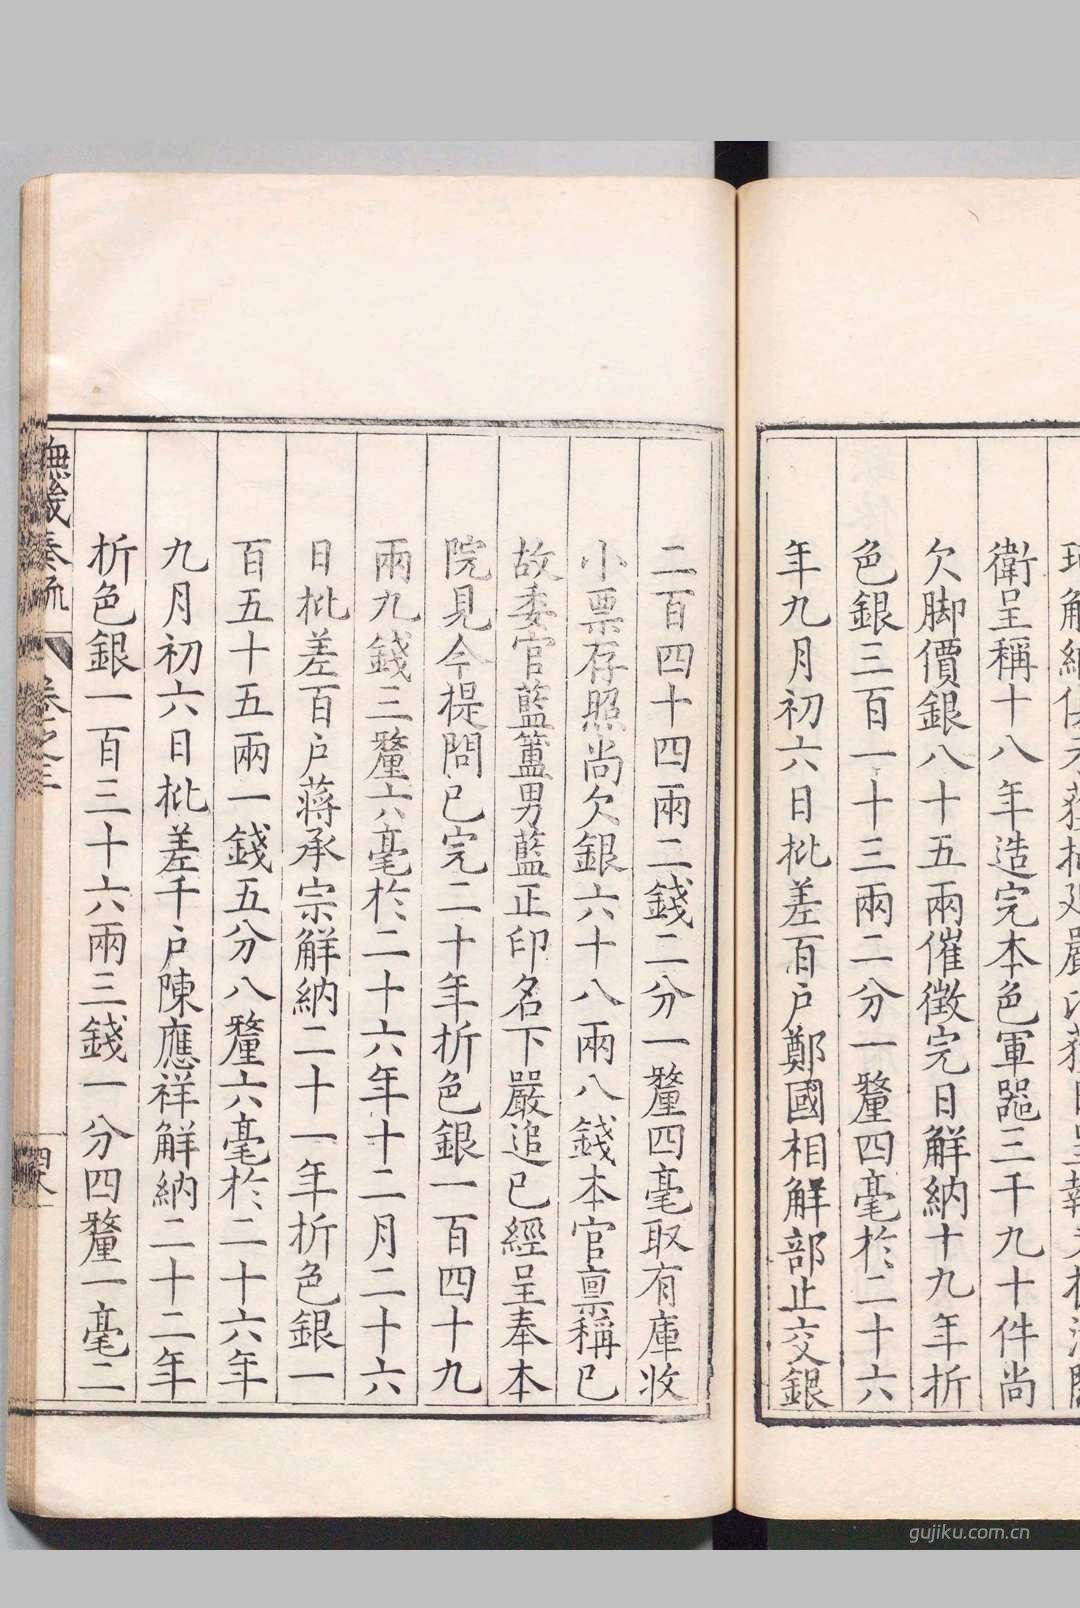 衛呈稱十八年造完本色軍噐三千九十件尚
欠脚價銀八十五兩催徴完日觧納十九年折
色銀三百一十三兩二分一釐四毫於二十六
年九月初六日批差百户鄭國相解部止交銀
二百四十四兩二錢二分一釐四毫取有庫收
小票存照尚欠銀六十八兩八錢本官禀稱已
故委官藍簠男藍正印名下嚴追已經呈奉本
院見今提問已完二十年折色銀一百四十九
兩九錢三釐六毫於二十六年十二月二十六
日批差百户蔣承宗觧納二十一年折色銀一
百五十五兩一錢五分八釐六毫於二十六年
九月初六日批差千户陳應祥觧納二十二年
折色銀一百三十六兩三錢一分四釐一毫二
撫畿奏疏
卷之三
gujiku.com.cn